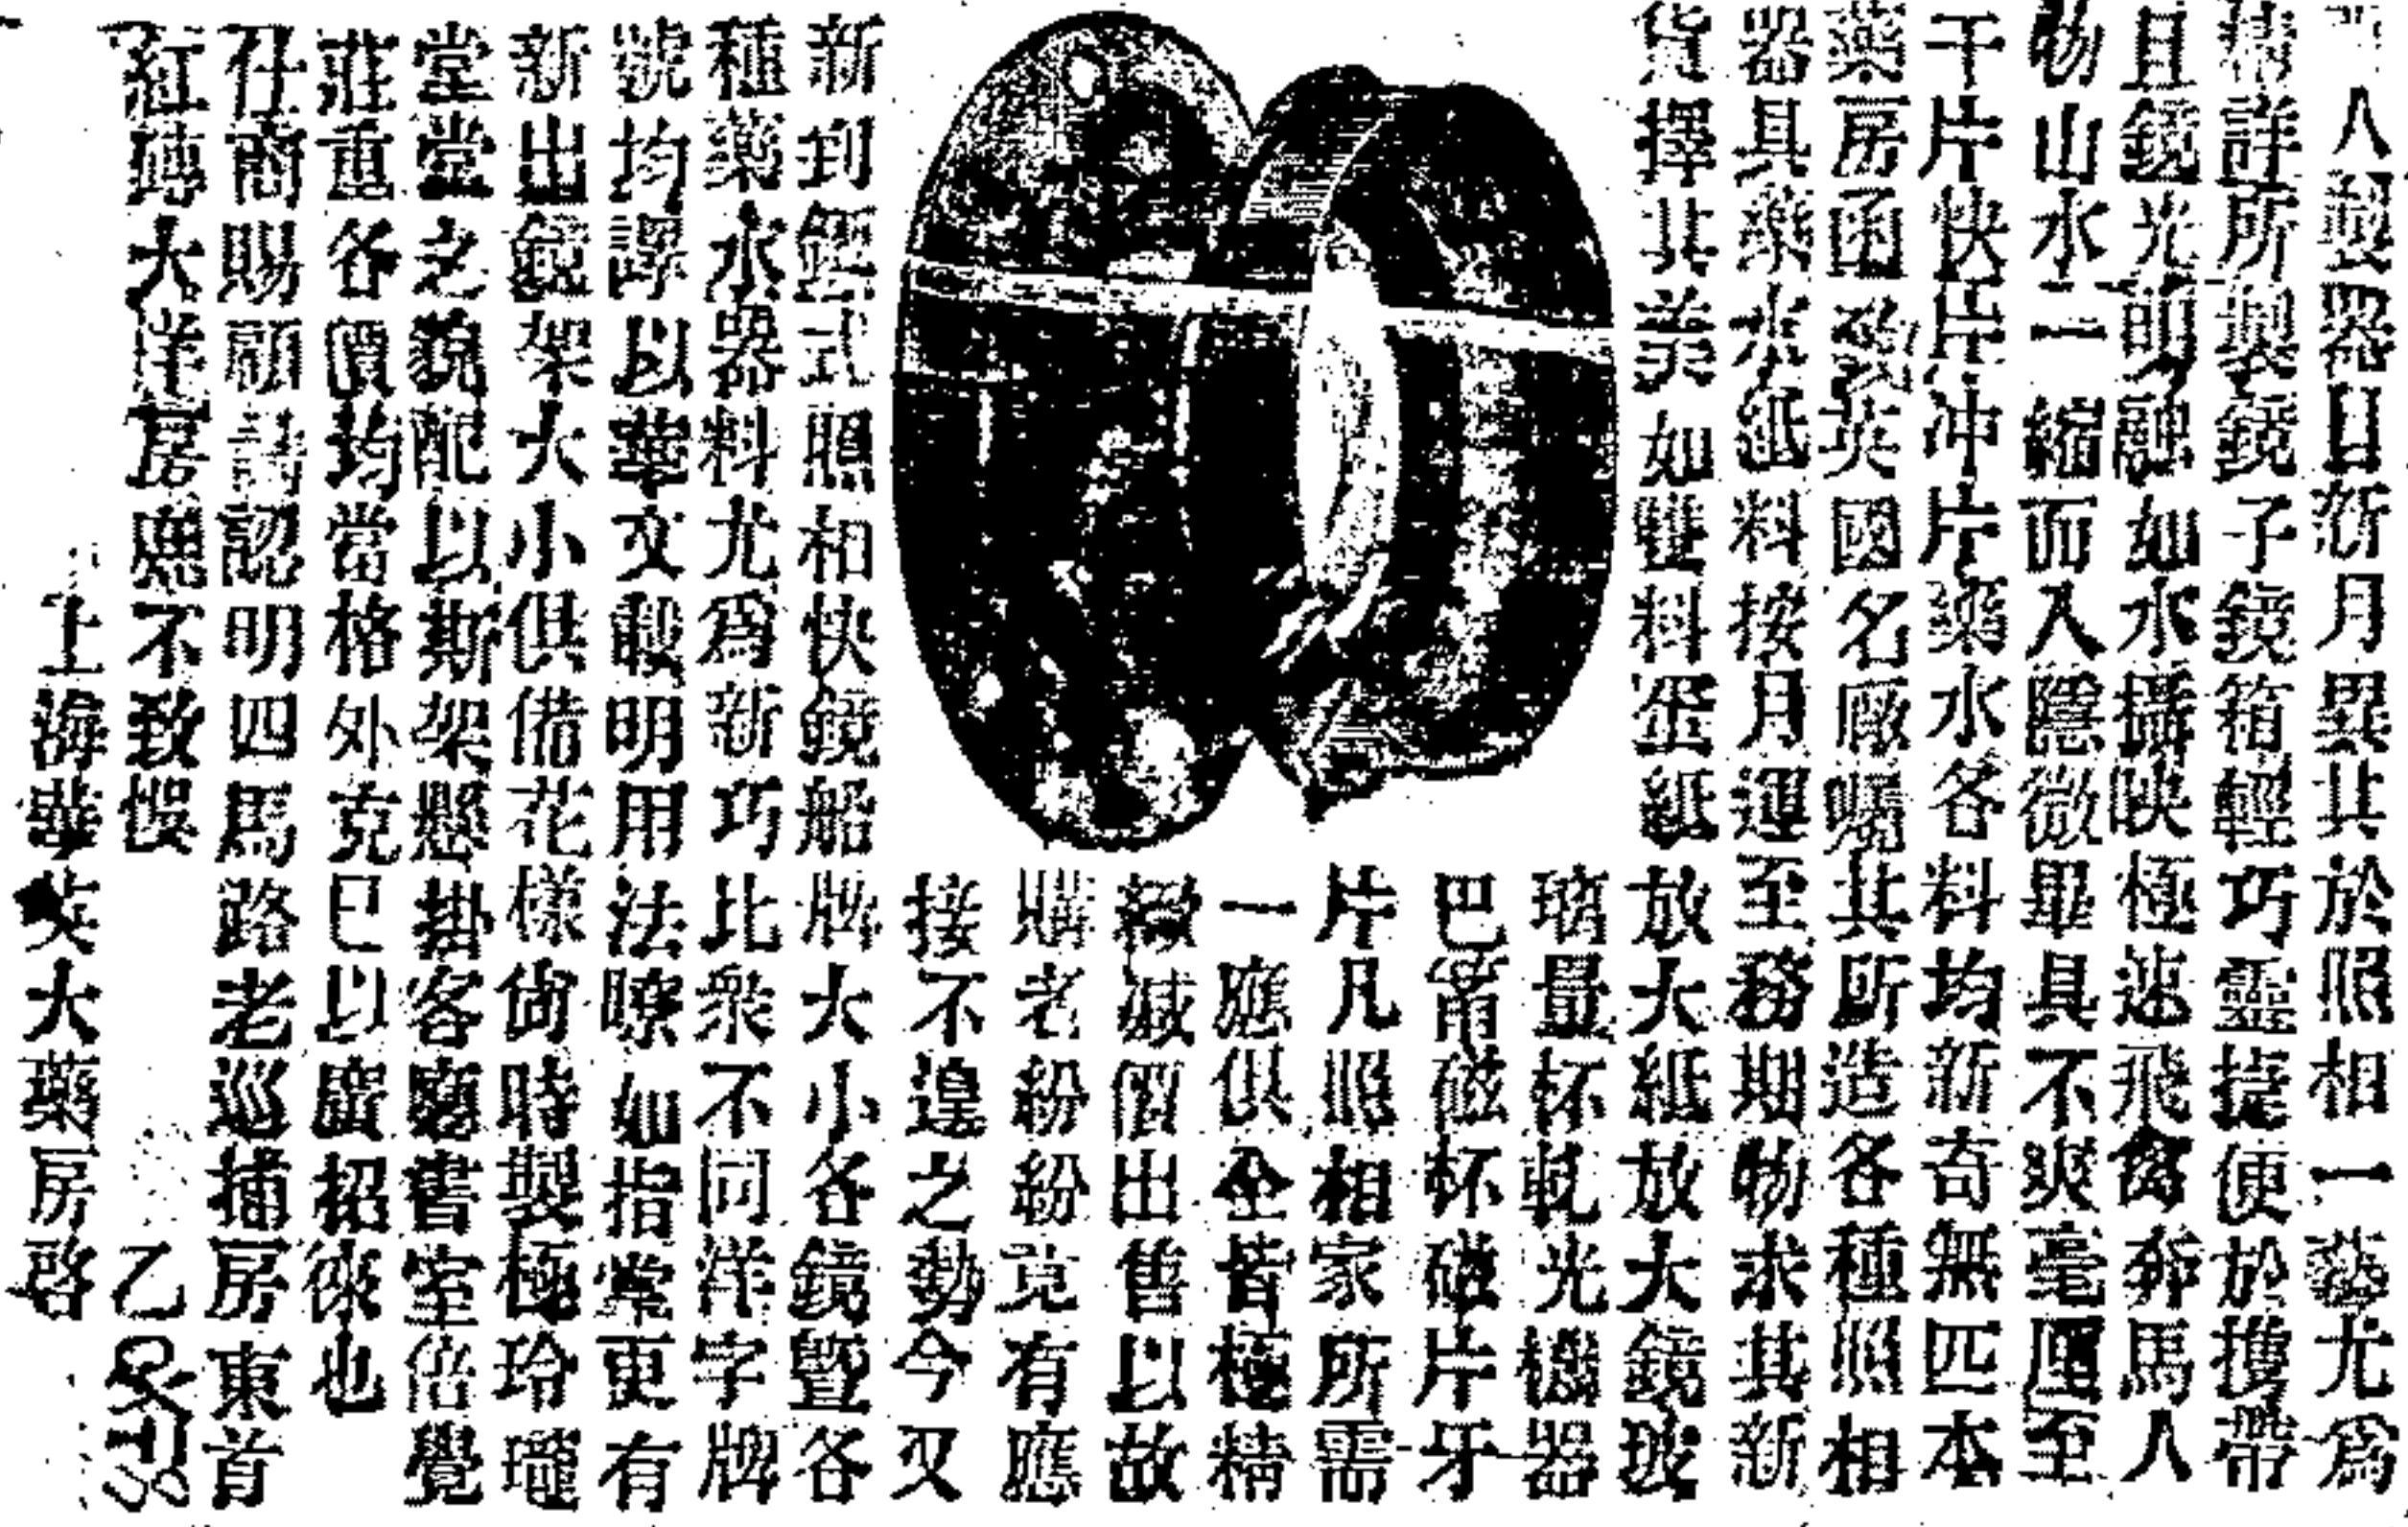 八製器日新月異其於照相一藝尤爲
精詳所製鏡子鏡箱輕巧靈捷便於攜帶
且鏡光明融如水攝映極速飛禽奔馬人
物山水一縮而入隱微畢具不爽毫厘至
干片快片冲片藥水各料均新奇無匹本
藥房函致英國名廠囑其所造各種照相
器具藥水紙料按月運至務期物求其新
貨擇其美如雙料蛋紙放大紙放大鏡玻
璃量杯軋光機器
巴黎磁杯磁片牙
片凡照相家所需
一應俱全皆極精
緻減價出售以故
購者紛紛竟有應
接不遑之勢今又
新到鏗式照相快鏡船牌大小各鏡曁各
種藥水器料尤爲新巧比衆不同洋字牌
號均譯以華文載明用法瞭如指掌更有
新出鏡架大小俱備花樣尙時製極玲瓏
堂堂之貌配以斯架懸掛客廳書室倍覺
莊重各價均當格外克已以廣招徠也
仔商賜顧請認明四馬路老巡捕房東首
紅磚大洋房庶不致悞
上海華英大藥房啓